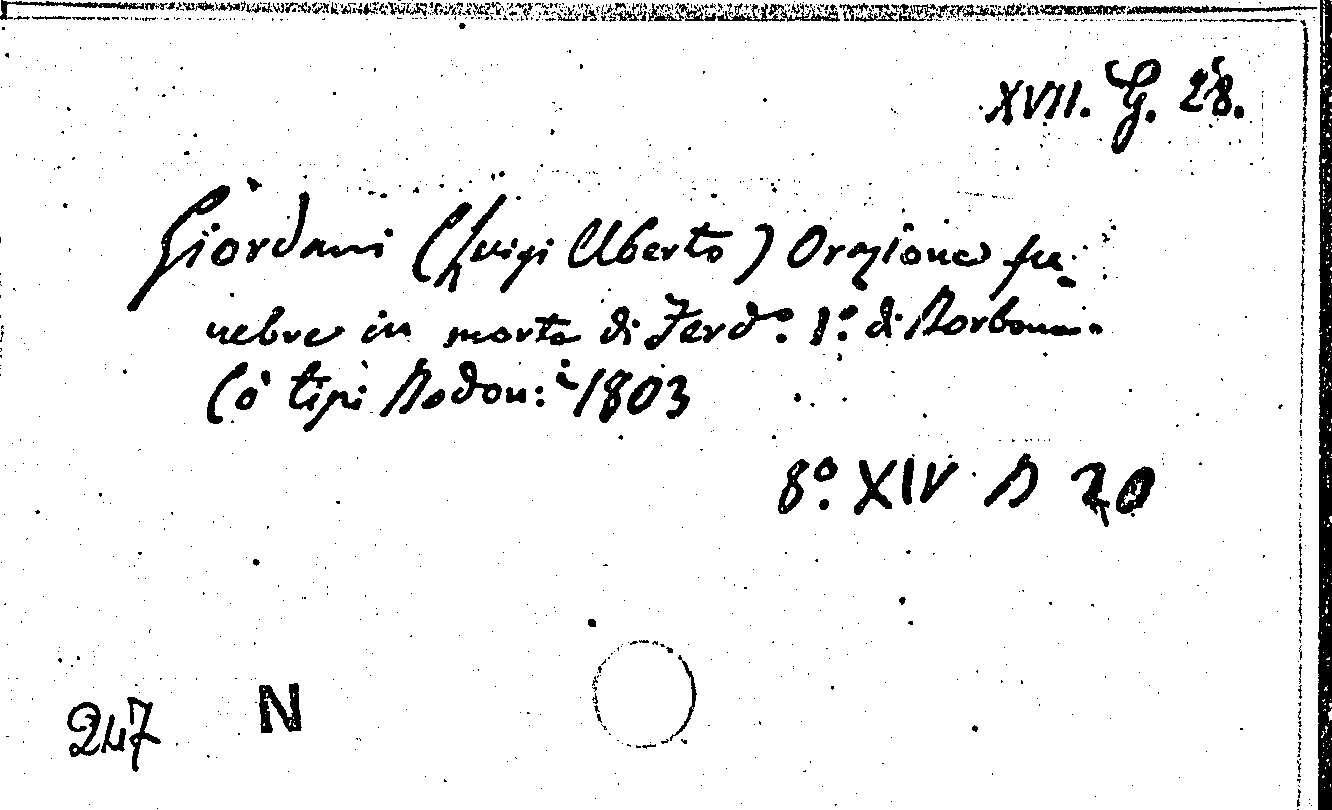 XVII. G. 28.
Giordani (Luigi Uberto) Orazione fu-
nebre in morte di Ferdº. Iº. di Borbone.
Cò tipi Bodon:i 1803
8º. XIV B 20
247 N